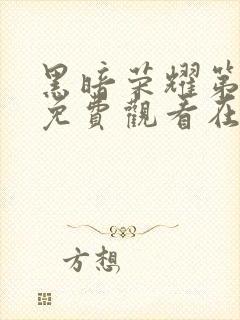 黑暗荣耀第
免費觀看在
方想